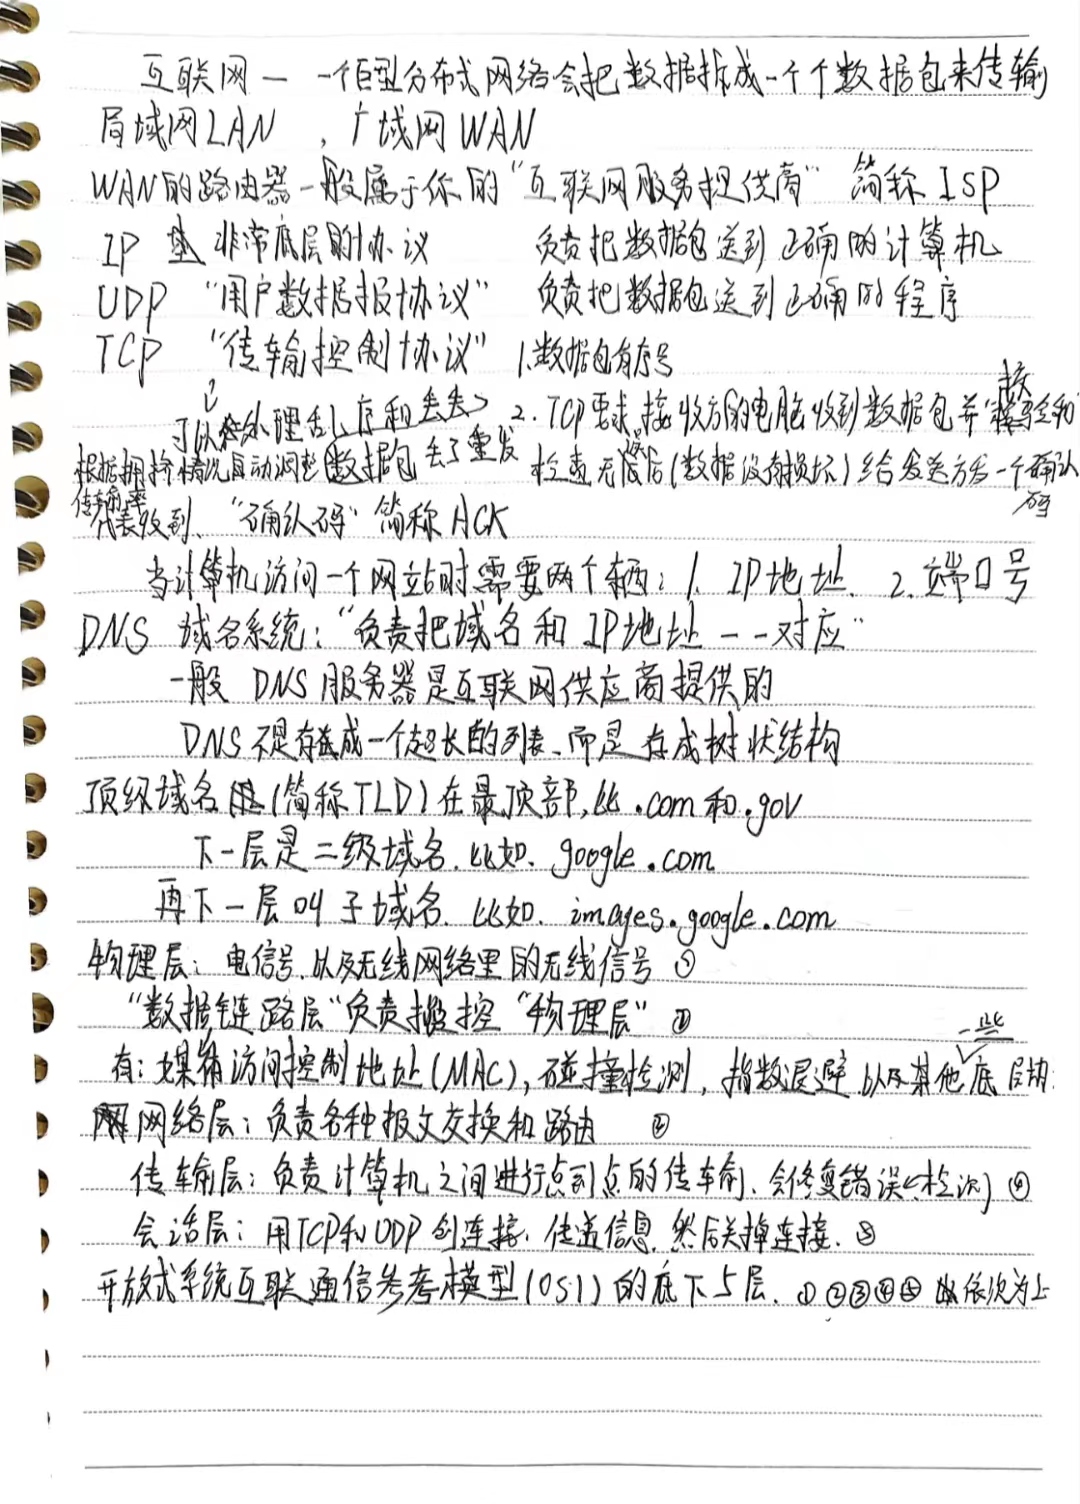 互联网 — 一个巨型分布式网络会把数据拆成一个个数据包来传输
局域网LAN ，广域网WAN
WAN的路由器一般属于你的“互联网服务提供商” 简称ISP
IP 是 非常底层的协议 负责把数据包送到正确的计算机
UDP “用户数据报协议” 负责把数据包送到正确的程序
TCP “传输控制协议” 1.数据包有序号
↓
可以处理乱序和丢失 2. TCP要求接收方的电脑收到数据包并“校验和
根据拥挤情况自动调整 数据包 丢了重发 检查无误后(数据没有损坏)给发送方发一个确认
传输率 码
代表收到. “确认码”简称ACK
当计算机访问一个网站时需要两个东西: 1. IP地址. 2.端口号
DNS 域名系统: “负责把域名和IP地址一一对应”
一般 DNS 服务器是互联网供应商提供的
DNS不是存成一个超长的列表、而是存成树状结构
顶级域名(简称TLD)在最顶部,比.com和.gov
下一层是二级域名.比如. google.com
再下一层叫子域名. 比如. images.google.com
物理层: 电信号.以及无线网络里的无线信号 ①
“数据链路层”负责操控“物理层” ②
一些
有: 媒体访问控制地址(MAC), 碰撞检测, 指数退避以及其他底层协
网络层: 负责各种报文交换和路由 ③
传输层: 负责计算机之间进行点到点的传输、会修复错误(检测) ④
会话层: 用TCP和UDP创连接. 传递信息. 然后关掉连接. ⑤
开放式系统互联通信参考模型(OSI)的底下5层. ①②③④⑤ 依次为上